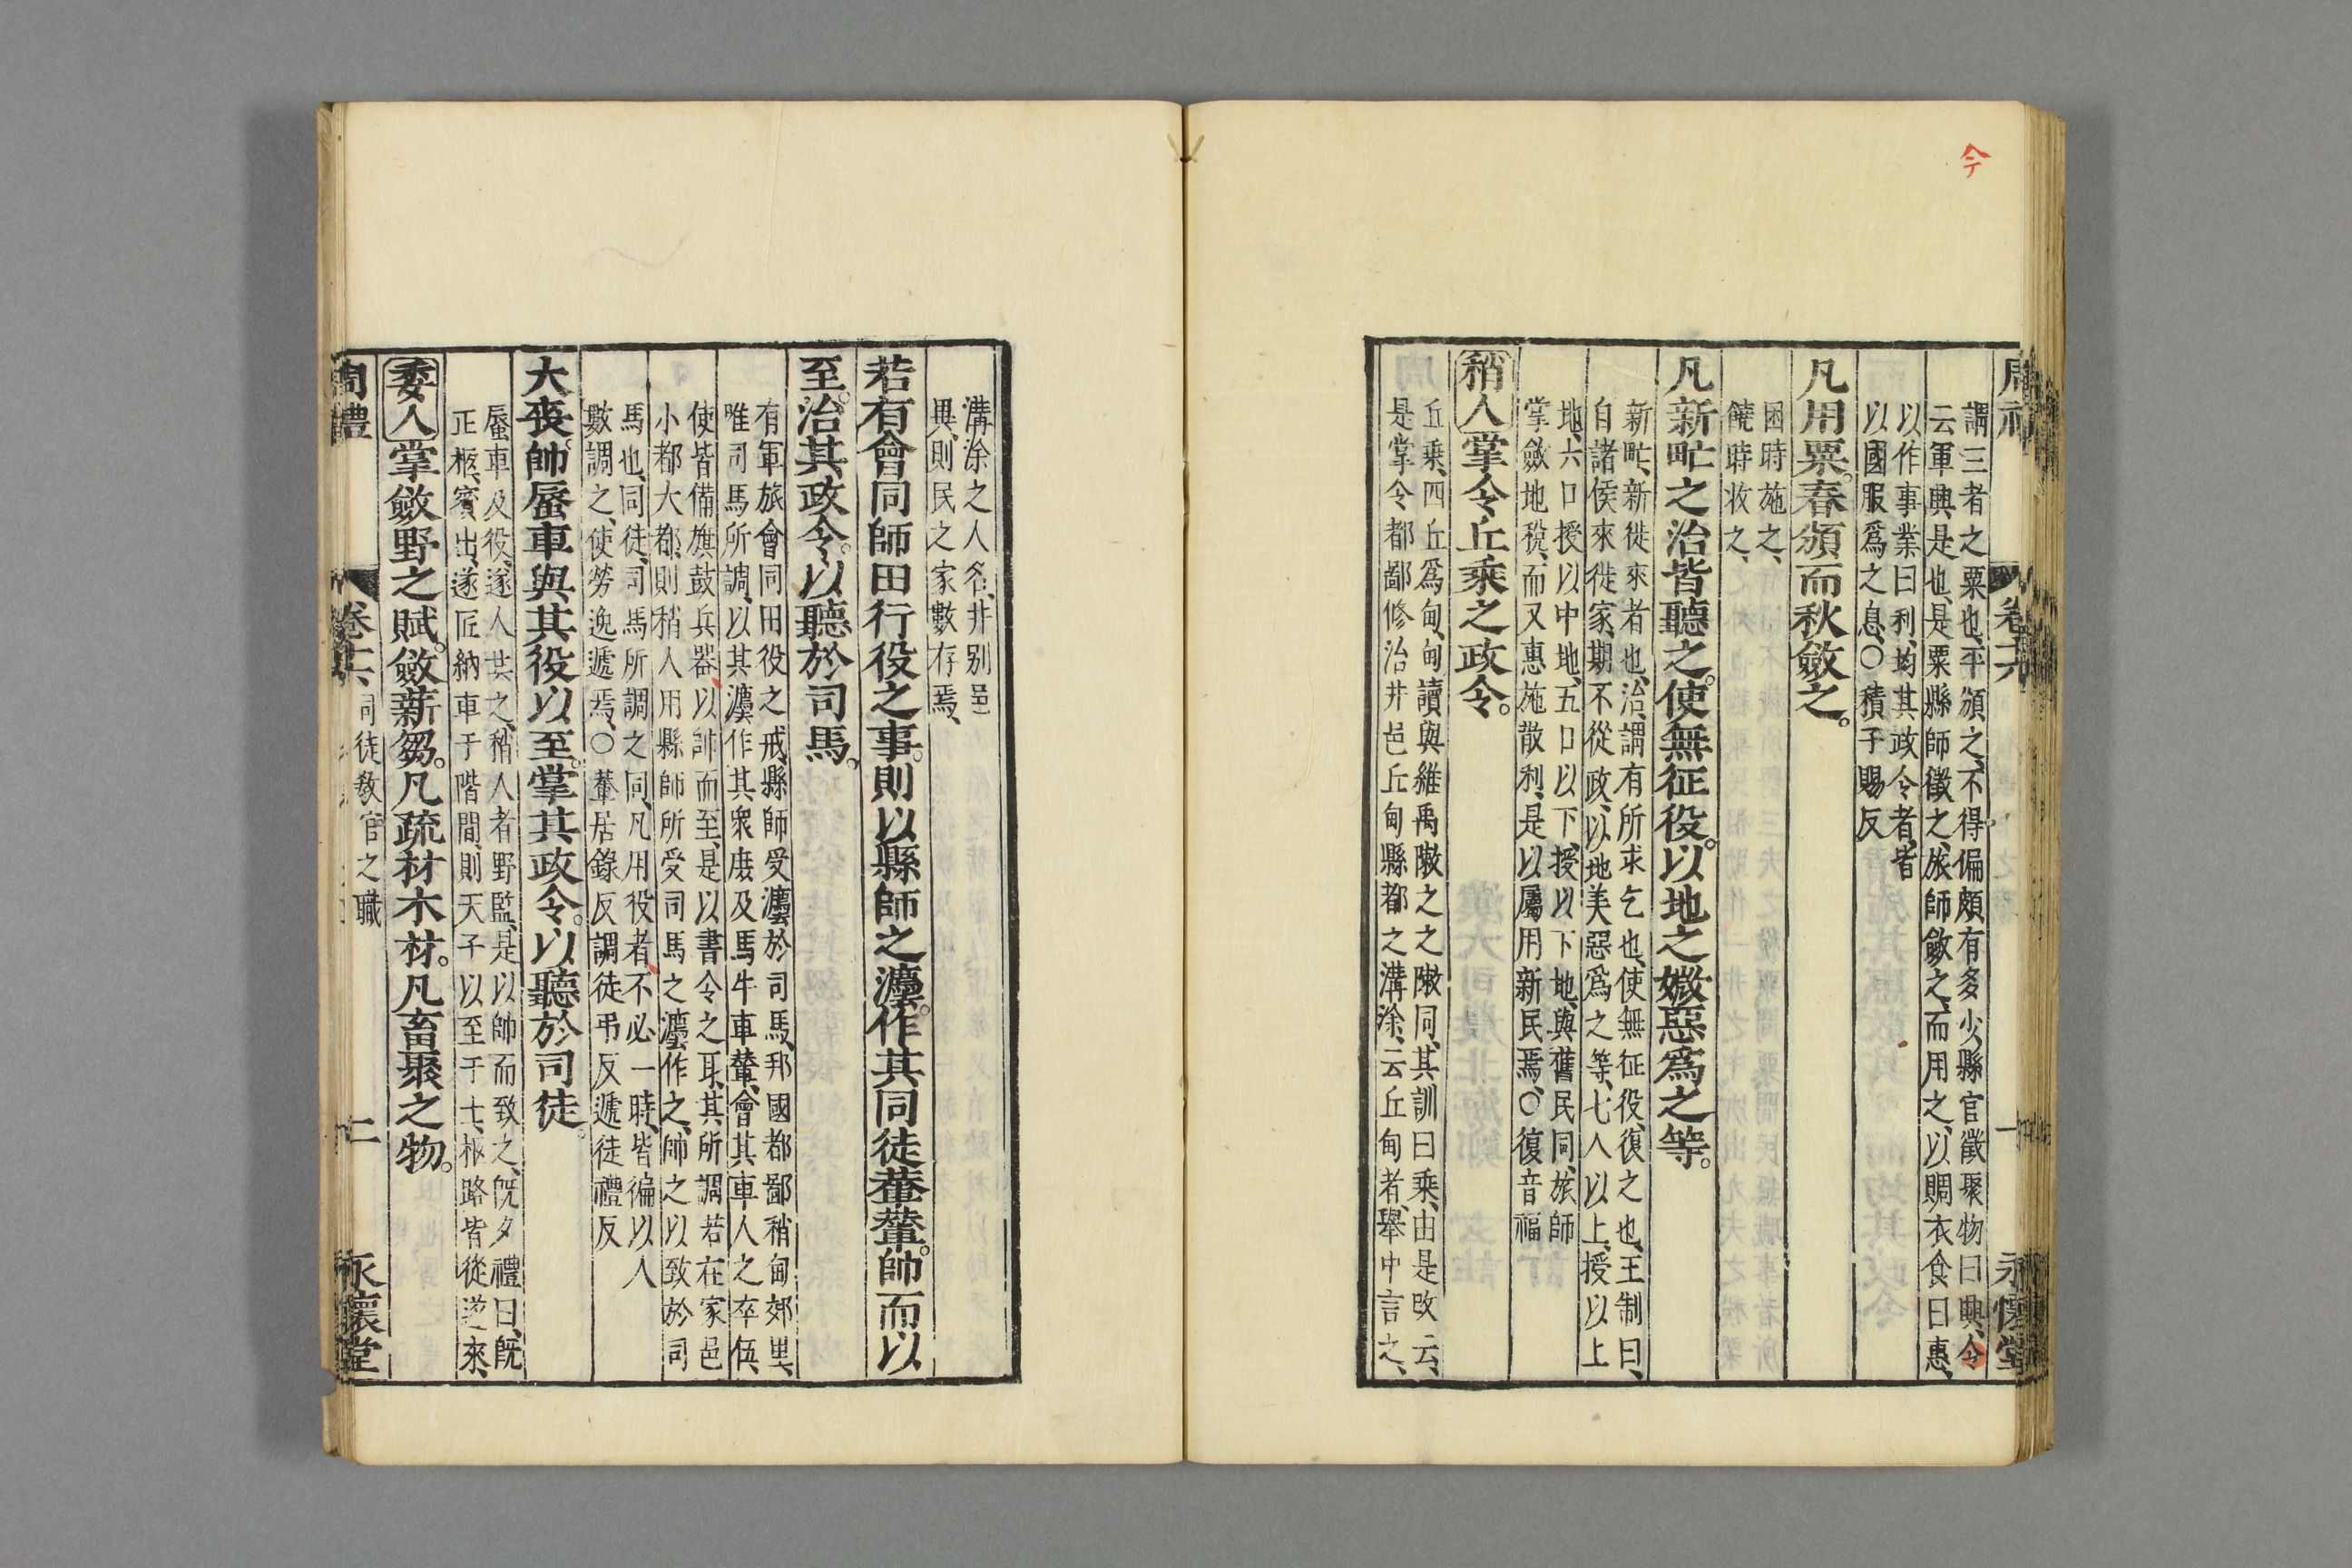 今
周禮 卷十六 一 永懷堂
謂三者之粟也、平頒之、不得偏頗有多少、縣官徵聚物曰興、今
云軍興、是也、是粟縣師徵之、旅師斂之、而用之、以賙衣食曰惠、
以作事業曰利、均其政令者、皆
以國服爲之息、〇積子賜反
凡用粟。春頒而秋斂之。
困時施之、
饒時收之、
凡新甿之治皆聽之。使無征役。以地之媺惡爲之等。
新甿、新徙來者也、治、謂有所求乞也、使無征役、復之也、王制曰、
自諸侯來徙家、期不從政、以地美惡爲之等、七人以上、授以上
地、六口授以中地、五口以下、授以下地、與舊民同、旅師
掌斂地稅、而又惠施散利、是以屬用新民焉、〇復音福
稍人掌令丘乘之政令。
丘乘、四丘爲甸、甸讀與維禹敶之之敶同、其訓曰乘、由是改云、
是掌令都鄙修治井邑丘甸縣都之溝涂、云丘甸者、舉中言之、
溝涂之人名、井别邑
異、則民之家數存焉、
若有會同師田行役之事。則以縣師之灋。作其同徒輂輦。帥而以
至。治其政令。以聽於司馬。
有軍旅會同田役之戒、縣師受灋於司馬、邦國都鄙稍甸郊里、
唯司馬所調、以其灋作其衆庶及馬牛車輦、會其車人之卒伍、
使皆備旗鼓兵器、以帥而至、是以書令之耳、其所調若在家邑
小都大都、則稍人用縣師所受司馬之灋作之、帥之以致於司
馬也、同徒、司馬所調之同、凡用役者、不必一時、皆徧以人
數調之、使勞逸遞焉、〇輂居錄反調徒弔反遞徒禮反
大喪帥蜃車與其役以至。掌其政令。以聽於司徒。
蜃車及役、遂人共之、稍人者野監、是以帥而致之、旣夕禮曰、旣
正柩、賓出、遂匠納車于階間、則天子以至于士、柩路皆從遂來、
委人掌斂野之賦。斂薪芻。凡疏材木材。凡畜聚之物。
周禮 卷十六 司徒敎官之職 二 永懷堂